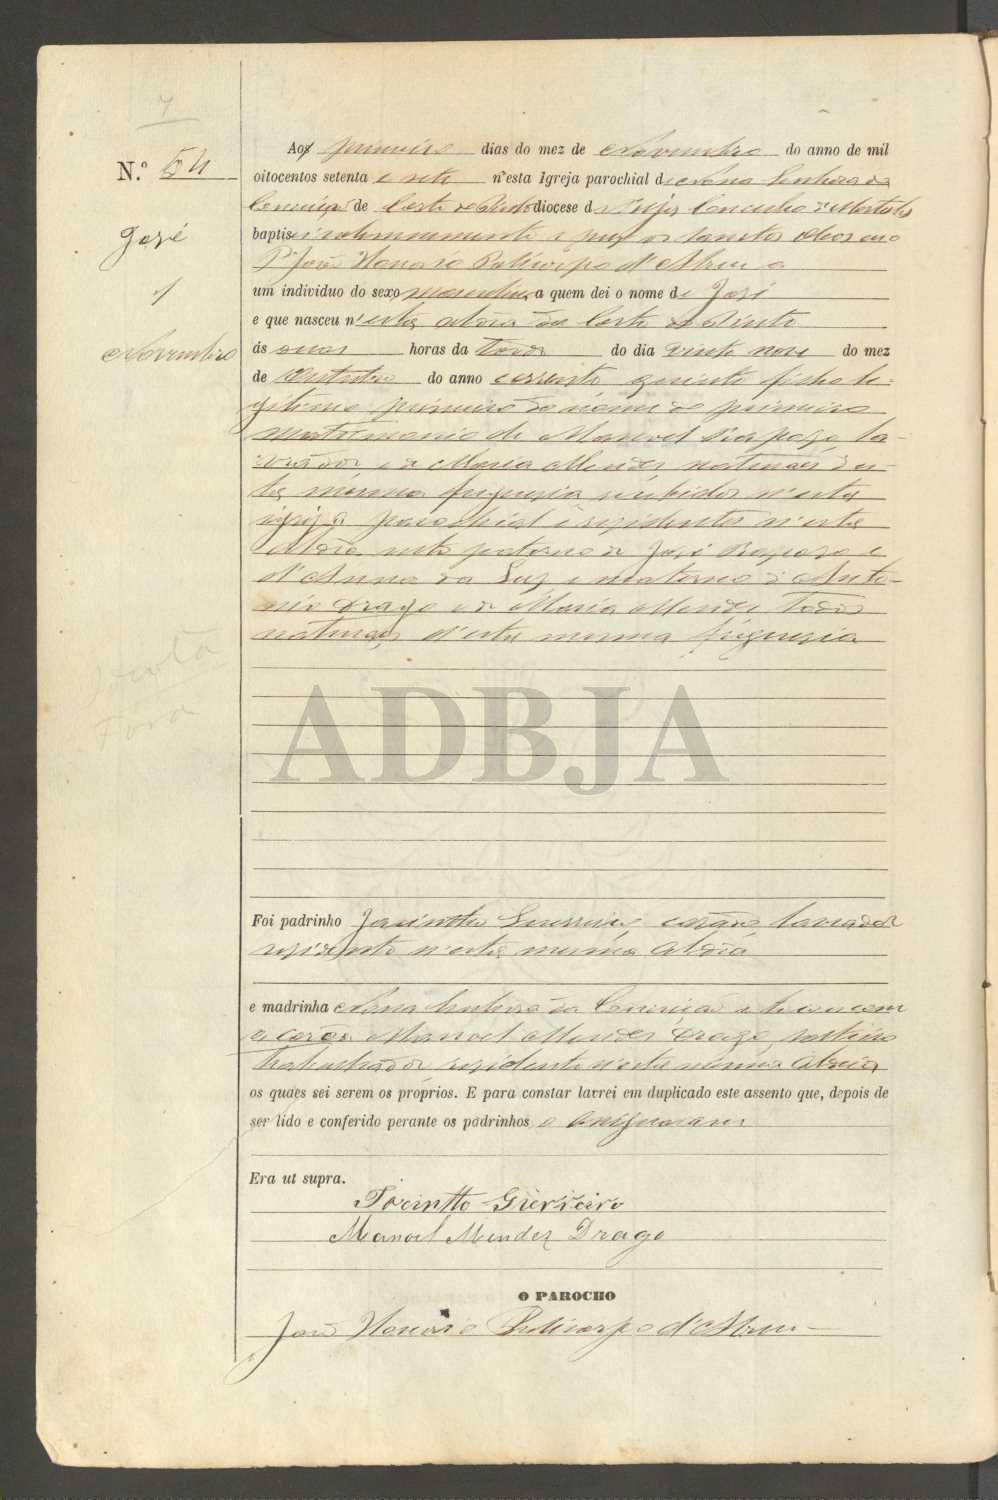 N.º 54
José
Novembro
Aos primeiro dias do mez de Novembro do anno de mil
oitocentos setenta e sete n'esta Igreja parochial de Nossa Senhora da
Conceição de Corte do Pinto diocese de Beja Concelho de Mertola
baptisei solemnemente e puz os sanctos oleos eu o
P.e João Honorio Policarpo d'Abreu a
um individuo do sexo masculino a quem dei o nome de José
e que nasceu n'esta aldeia da Corte do Pinto
ás duas horas da tarde do dia vinte nove do mez
de Outubro do anno corrente quinto filho le-
gitimo primeiro do nome do primeiro
matrimonio de Manoel Raposo la-
vrador e de Maria Mendes naturaes d'es-
ta mesma freguesia recebidos n'esta
igreja parochial e residentes n'esta
Aldeia neto paterno de José Raposo e
d'Anna da Luz e materno d'Anto-
nio Drago e de Maria Mendes todos
naturaes d'esta mesma freguesia
ADBJA
Foi padrinho Jacintho Guerreiro casado lavrador
residente n'esta mesma Aldeia
e madrinha Nossa Senhora da Conceição e tocou com
a coroa Manoel Mendes Drago solteiro
trabalhador residente n'esta mesma Aldeia
os quaes sei serem os próprios. E para constar lavrei em duplicado este assento que, depois de
ser lido e conferido perante os padrinhos, o assignaram
Era ut supra.
Jacintto Guerreiro
Manoel Mendez Drago
O PAROCHO
João Honorio Policarpo d'Abreu